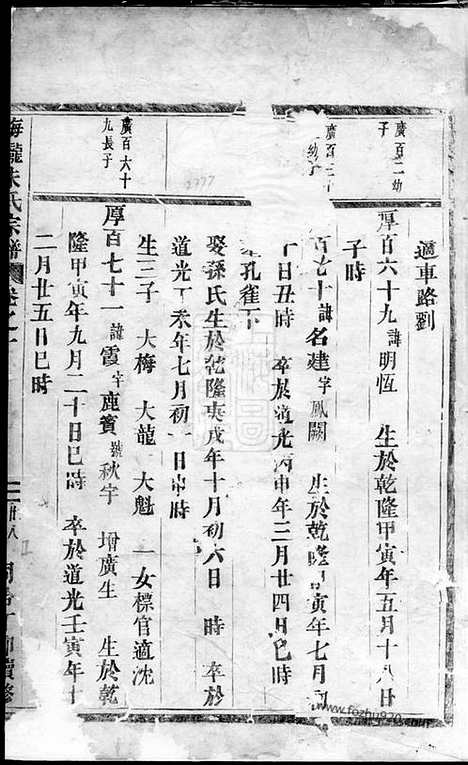 適車路劉
廣百二幼
子
厚百六十九諱明恆 生於乾隆甲寅年五月十八日
子時
幼子
百七十諱名建字鳳闕 生於乾隆甲寅年七月
日丑時 卒於道光丙申年三月廿四日巳時
孔雀下
娶孫氏生於乾隆庚戌年十月初六日 時 卒於
道光丁亥年七月初一日申時
生三子 大梅 大龍 大魁 一女標官適沈
廣百六十
九長子
厚百七十一諱霞字鹿賓號秋宇 增廣生 生於乾
隆甲寅年九月二十日巳時 卒於道光壬寅年十
二月廿五日巳時
梅隴朱氏宗譜
2777
www.fozhu920.com